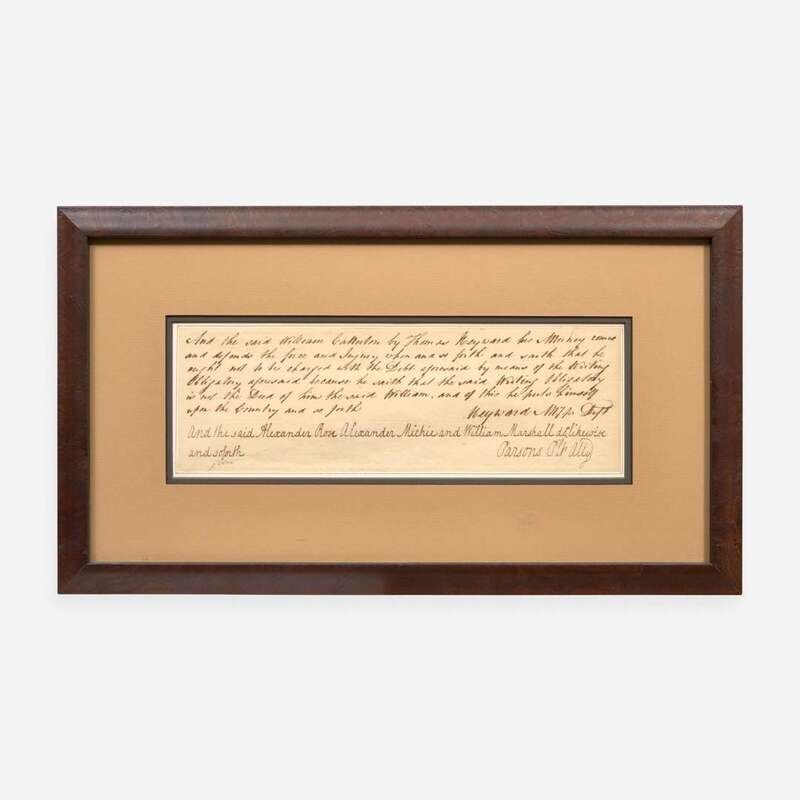 And the said William Catterton by Thomas Heyward his Attorney comes
and defends the force and Injury when and so forth and saith that he
ought not to be charged with the Debt aforesaid by means of the Writing
Obligatory aforesaid because he saith that the said Writing Obligatory
is not the Deed of him the said William, and of this he puts himself
upon the Country and so forth Heyward
And the said Alexander Rose Alexander Michie and William Marshall do likewise
and so forth Parsons Plt Atty